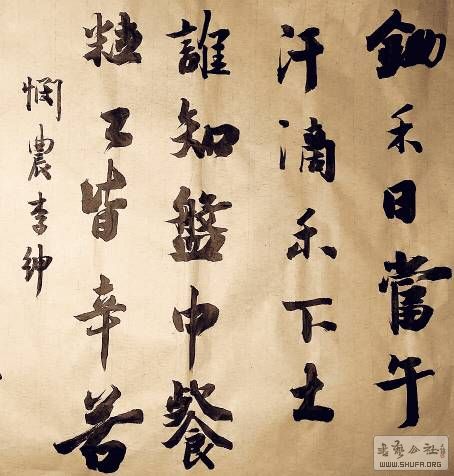 鋤禾日當午
汗滴禾下土
誰知盤中餐
粒々皆辛苦
憫農李紳
书艺公社
WWW.SHUFA.ORG